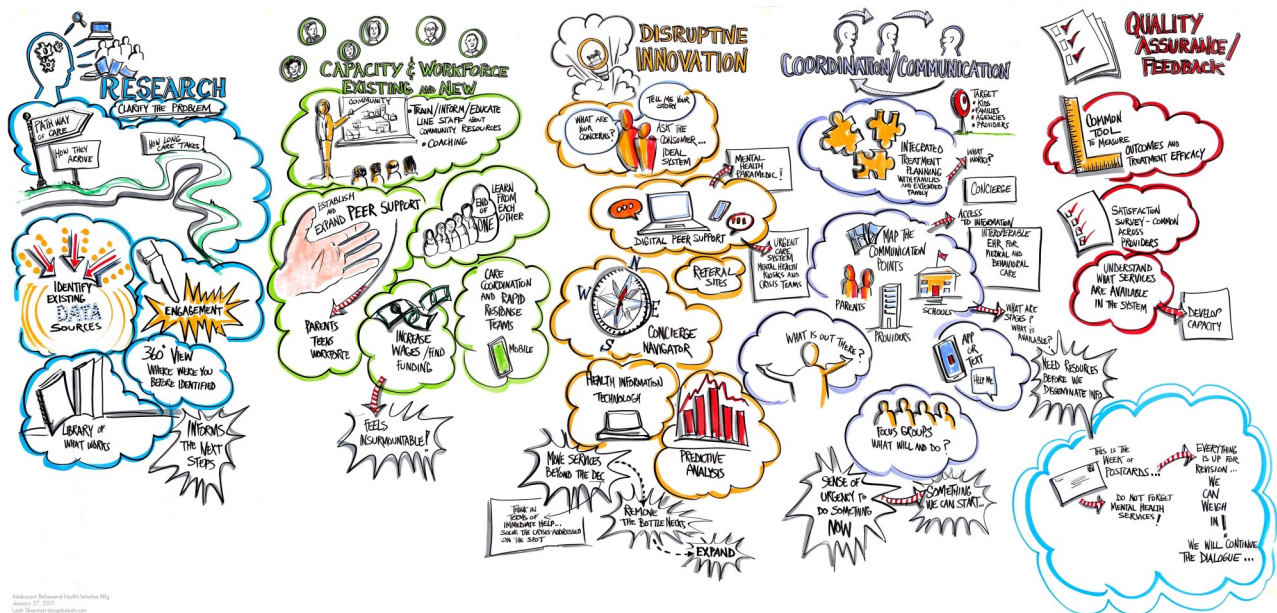 RESEARCH
CLARIFY THE PROBLEM
PATHWAY
OF CARE
HOW THEY
ARRIVE
HOW LONG
CARE TAKES
IDENTIFY
EXISTING
DATA
SOURCES
ENGAGEMENT
360° VIEW
WHERE WERE YOU
BEFORE IDENTIFIED
LIBRARY OF
WHAT WORKS
INFORMS
THE NEXT
STEPS
CAPACITY & WORKFORCE
EXISTING AND NEW
COMMUNITY
• TRAIN/INFORM/EDUCATE
LINE STAFF ABOUT
COMMUNITY RESOURCES
• COACHING
ESTABLISH
AND
EXPAND PEER SUPPORT
PARENTS
TEENS
WORKFORCE
LEARN
FROM
EACH
OTHER
END
OF
ONE
INCREASE
WAGES/FIND
FUNDING
FEELS
INSURMOUNTABLE!
CARE
COORDINATION
AND RAPID
RESPONSE
TEAMS
MOBILE
DISRUPTIVE
INNOVATION
WHAT ARE
YOUR
CONCERNS?
TELL ME YOUR
STORY
ASK THE
CONSUMER...
IDEAL
SYSTEM
MENTAL
HEALTH
PARAMEDIC!
DIGITAL PEER SUPPORT
URGENT
CARE
SYSTEM
MENTAL HEALTH
KIOSKS AND
CRISIS TEAMS
REFERAL
SITES
N
W
E
S
CONCIERGE
NAVIGATOR
HEALTH INFORMATION
TECHNOLOGY
PREDICTIVE
ANALYSIS
MOVE SERVICES
BEYOND THE DEC
THINK IN
TERMS OF
IMMEDIATE HELP...
SOLVE THE CRISIS ADDRESSED
ON THE SPOT
REMOVE
THE BOTTLE NECKS
EXPAND
COORDINATION/COMMUNICATION
TARGET
• KIDS
• FAMILIES
• AGENCIES
• PROVIDERS
INTEGRATED
TREATMENT
PLANNING
WITH FAMILIES
AND EXTENDED
FAMILY
WHAT
WORKS?
CONCIERGE
MAP THE
COMMUNICATION
POINTS
PARENTS
PROVIDERS
SCHOOLS
ACCESS
TO INFORMATION/
INTEROPERABLE
EHR FOR
MEDICAL AND
BEHAVIORAL
CARE
WHAT ARE
STAGES?
WHAT IS
AVAILABLE?
WHAT IS OUT THERE?
APP
OR
TEXT
HELP ME
NEED RESOURCES
BEFORE WE
DISSEMINATE INFO
FOCUS GROUPS
WHAT WILL AND DO?
SENSE OF
URGENCY TO
DO SOMETHING
NOW
SOMETHING
WE CAN START...
QUALITY
ASSURANCE/
FEEDBACK
COMMON
TOOL
TO MEASURE
OUTCOMES AND
TREATMENT EFFICACY
SATISFACTION
SURVEY - COMMON
ACROSS
PROVIDERS
UNDERSTAND
WHAT SERVICES
ARE AVAILABLE
IN THE SYSTEM
DEVELOP
CAPACITY
THIS IS THE
WEEK OF
POSTCARDS...
DO NOT FORGET
MENTAL HEALTH
SERVICES!
EVERYTHING
IS UP FOR
REVISION...
WE
CAN
WEIGH
IN!
WE WILL CONTINUE
THE DIALOGUE...
Adolescent Behavioral Health Initiative Mtg
January 27, 2017